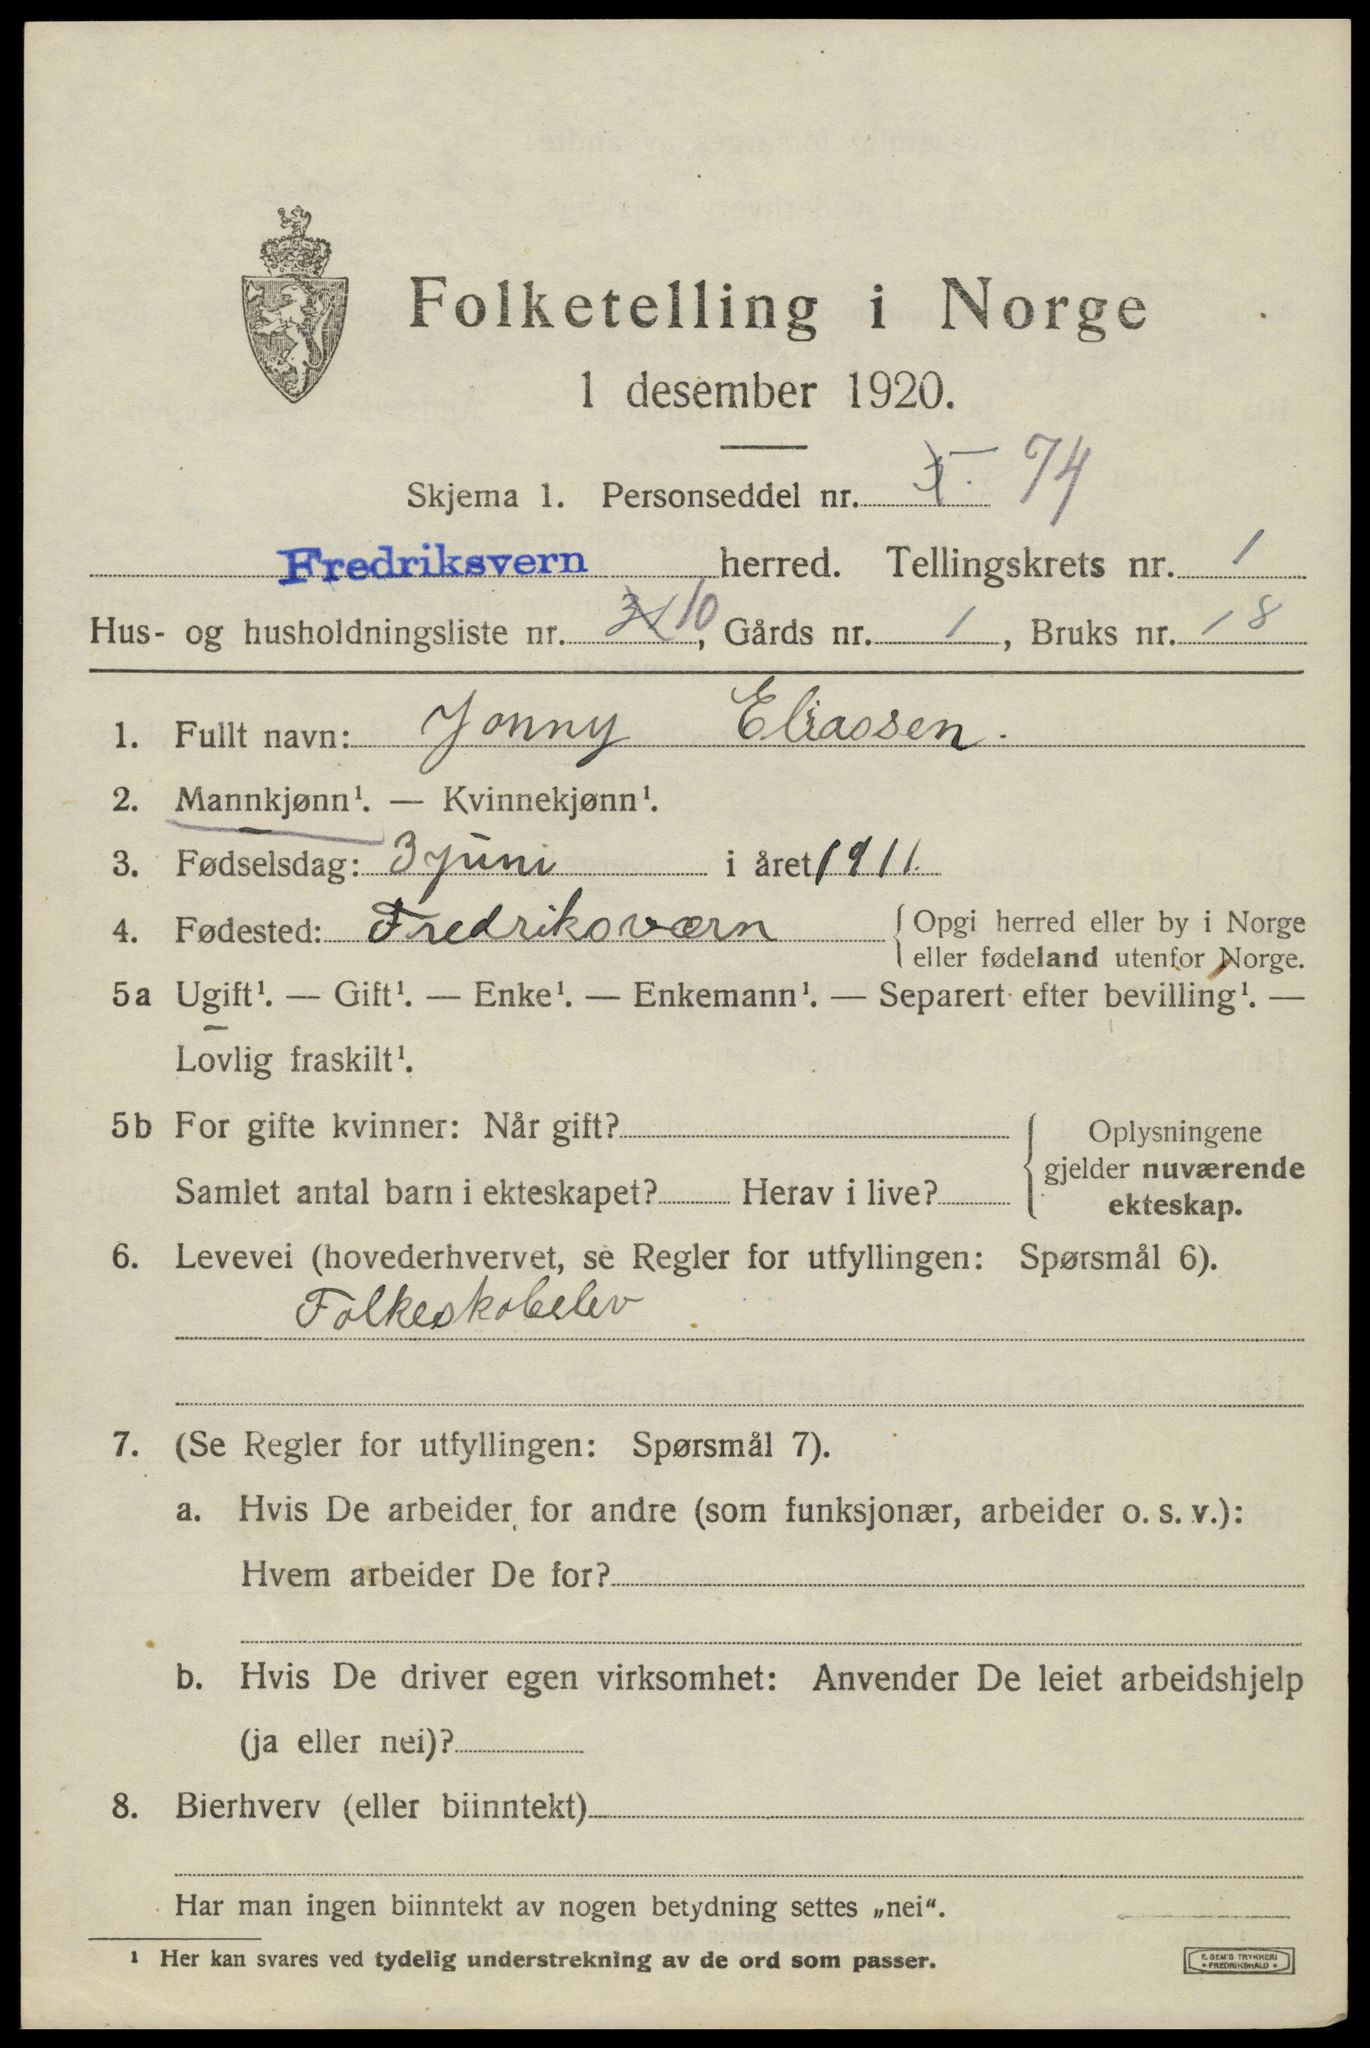 Folketelling i Norge
1 desember 1920.
Skjema 1. Personseddel nr. 74
Fredriksvern herred. Tellingskrets nr. 1
Hus- og husholdningsliste nr. 10, Gårds nr. 1, Bruks nr. 18
1. Fullt navn: Jonny Eliassen.
2. Mannkjønn¹. — Kvinnekjønn¹.
3. Fødselsdag: 3 juni i året 1911.
4. Fødested: Fredriksværn { Opgi herred eller by i Norge
eller fødeland utenfor Norge.
5a Ugift¹. — Gift¹. — Enke¹. — Enkemann¹. — Separert efter bevilling¹. —
Lovlig fraskilt¹.
5b For gifte kvinner: Når gift? { Oplysningene
gjelder nuværende
Samlet antal barn i ekteskapet? Herav i live?
ekteskap.
6. Levevei (hovederhvervet, se Regler for utfyllingen: Spørsmål 6).
Folkeskolelev
7. (Se Regler for utfyllingen: Spørsmål 7).
a. Hvis De arbeider for andre (som funksjonær, arbeider o. s. v.):
Hvem arbeider De for?
b. Hvis De driver egen virksomhet: Anvender De leiet arbeidshjelp
(ja eller nei)?
8. Bierhverv (eller biinntekt)
Har man ingen biinntekt av nogen betydning settes „nei“.
¹ Her kan svares ved tydelig understrekning av de ord som passer.
E. SEM'S TRYKKERI
• FREDRIKSHALD •